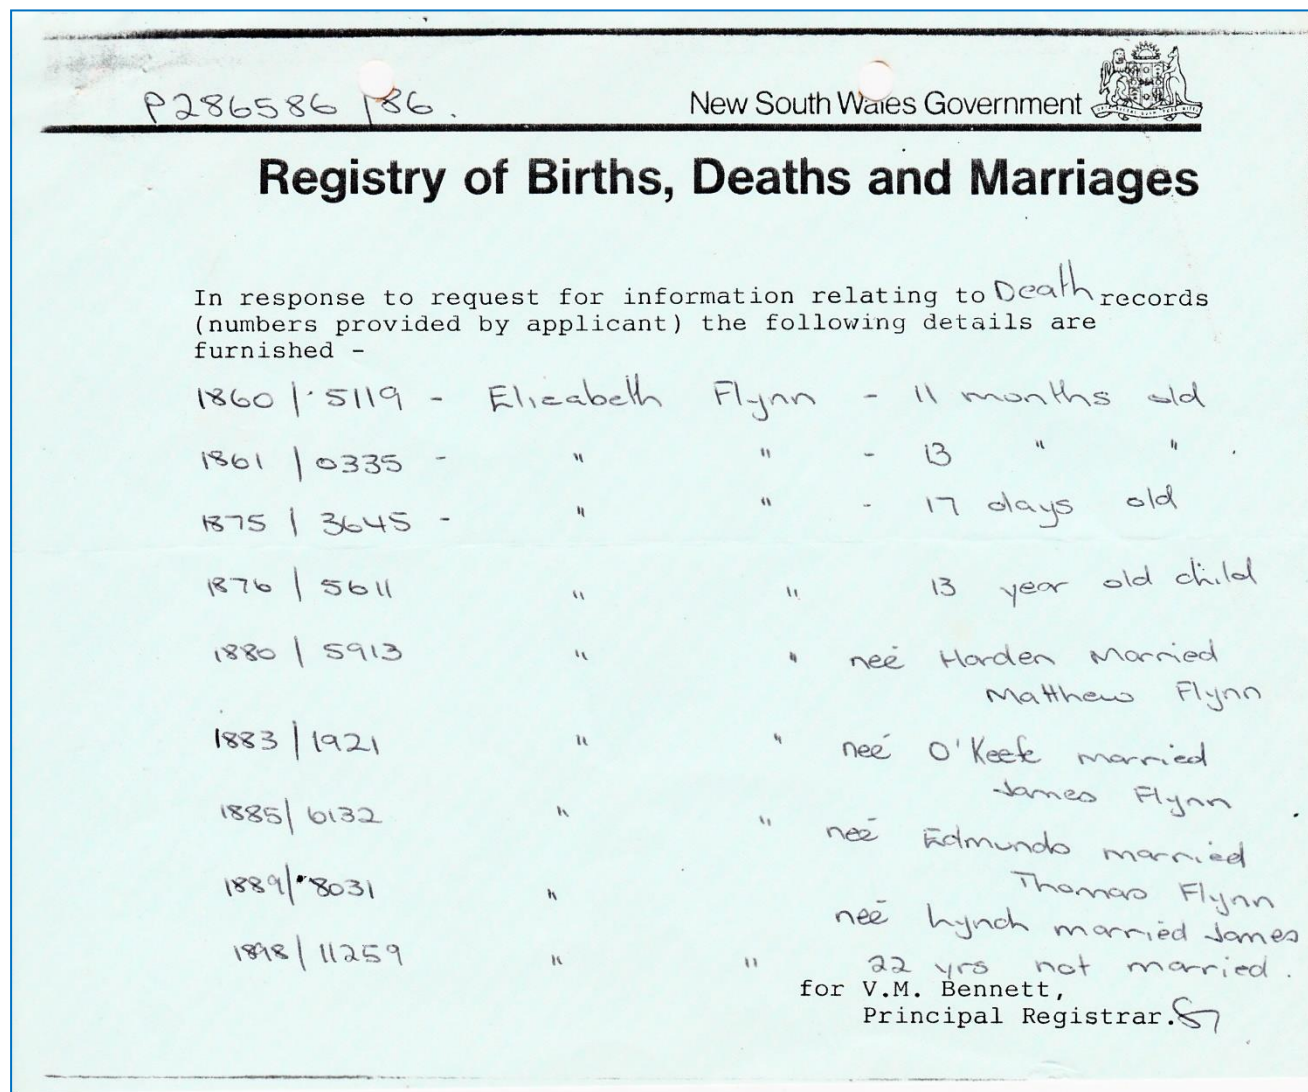 P286586 /86.
New South Wales Government
Registry of Births, Deaths and Marriages
In response to request for information relating to Death records
(numbers provided by applicant) the following details are
furnished -
1860 / 5119 - Elizabeth Flynn - 11 months old
1861 / 0335 - " " - 13 " " .
1875 / 3645 - " " - 17 days old
1876 / 5611 " " 13 year old child
1880 / 5913 " " neé Harden Married
Matthew Flynn
1883 / 1921 " " neé O'Keefe married
James Flynn
1885 / 6132 " " neé Edmunds married
Thomas Flynn
1889 / 8031 " neé Lynch married James
1898 / 11259 " " 22 yrs not married.
for V.M. Bennett,
Principal Registrar.